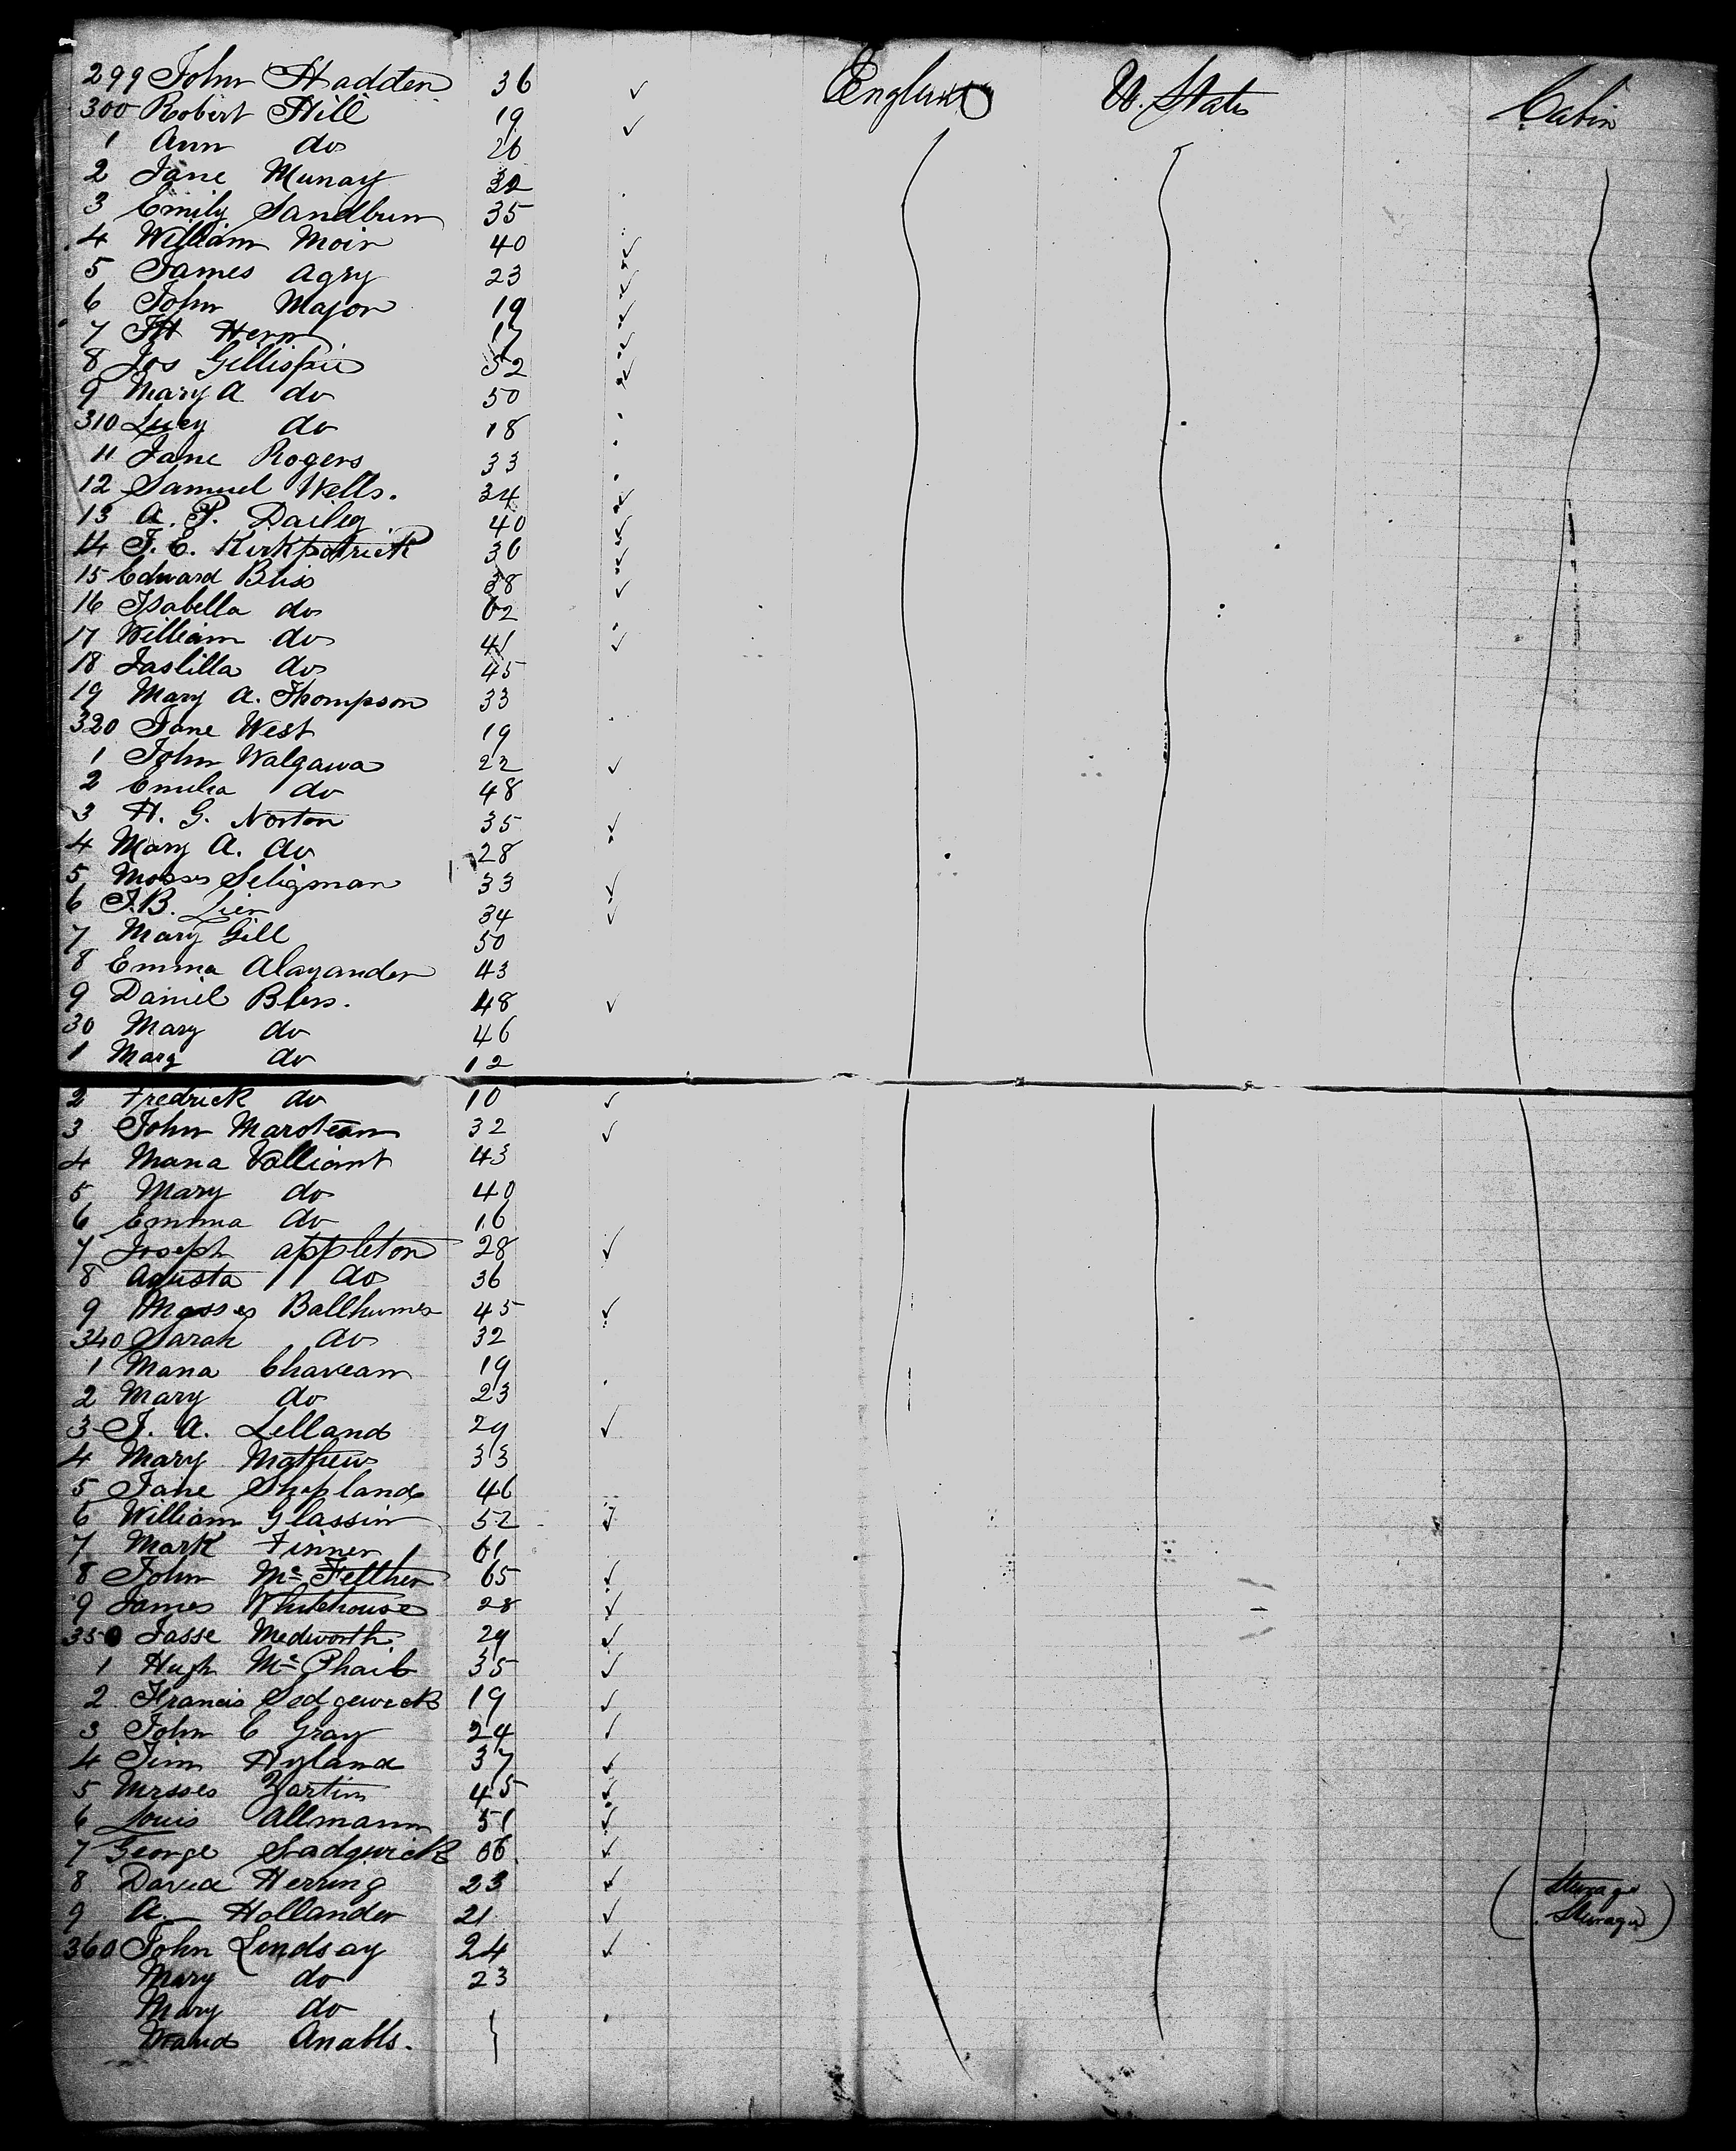 299 John Hadden 36 ✓ England U. States Cabin
300 Robert Hill 19 ✓
1 Ann do 26
2 Jane Munay 32
3 Emily Sandburn 35
4 William Moir 40 ✓
5 James Agry 23 ✓
6 John Major 19 ✓
7 Hern 17 ✓
8 Jos Gillispie 52 ✓
9 Mary A do 50
310 Lucy do 18
11 Jane Rogers 33
12 Samuel Wells. 34 ✓
13 A. P. Dailey 40 ✓
14 J. E. Kirkpatrick 36 ✓
15 Edward Bliss 38 ✓
16 Isabella do 62
17 William do 41 ✓
18 Jaslilla do 45
19 Mary A. Thompson 33
320 Jane West 19
1 John Walgawa 22 ✓
2 Emelia do 48
3 H. G. Norton 35 ✓
4 Mary A. do 28
5 Mosses Seligman 33 ✓
6 J.B. Lien 34 ✓
7 Mary Gill 50
8 Emma Alaxander 43
9 Daniel Blers. 48 ✓
30 Mary do 46
1 Mary do 12
2 Fredrick do 10 ✓
3 John Marsteam 32 ✓
4 Mana Valliant 43
5 Mary do 40
6 Emma do 16
7 Joseph Appleton 28 ✓
8 Agusta do 36
9 Mosses Ballhumes 45 ✓
340 Sarah do 32
1 Mana Chaveam 19
2 Mary do 23
3 J. A. Lelland 29 ✓
4 Mary Mathews 33
5 Jane Shopland 46
6 William Glassin 52 ✓
7 Mark Finner 61
8 John Mc Felther 65 ✓
9 James Whitehouse 28 ✓
350 Jasse Medworth 29 ✓
1 Hugh Mc Phail 35 ✓
2 Francis Sedgewick 19 ✓
3 John C Gray 24 ✓
4 Jim Hyland 37 ✓
5 Mosses Zartin 45 ✓
6 Louis Allmann 51 ✓
7 George Sadgwick 66 ✓
8 David Herring 23 ✓ (Sterage
9 A. Hollander 21 ✓ Sterage)
360 John Lindsay 24 ✓
Mary do 23
Mary do
Anabls.